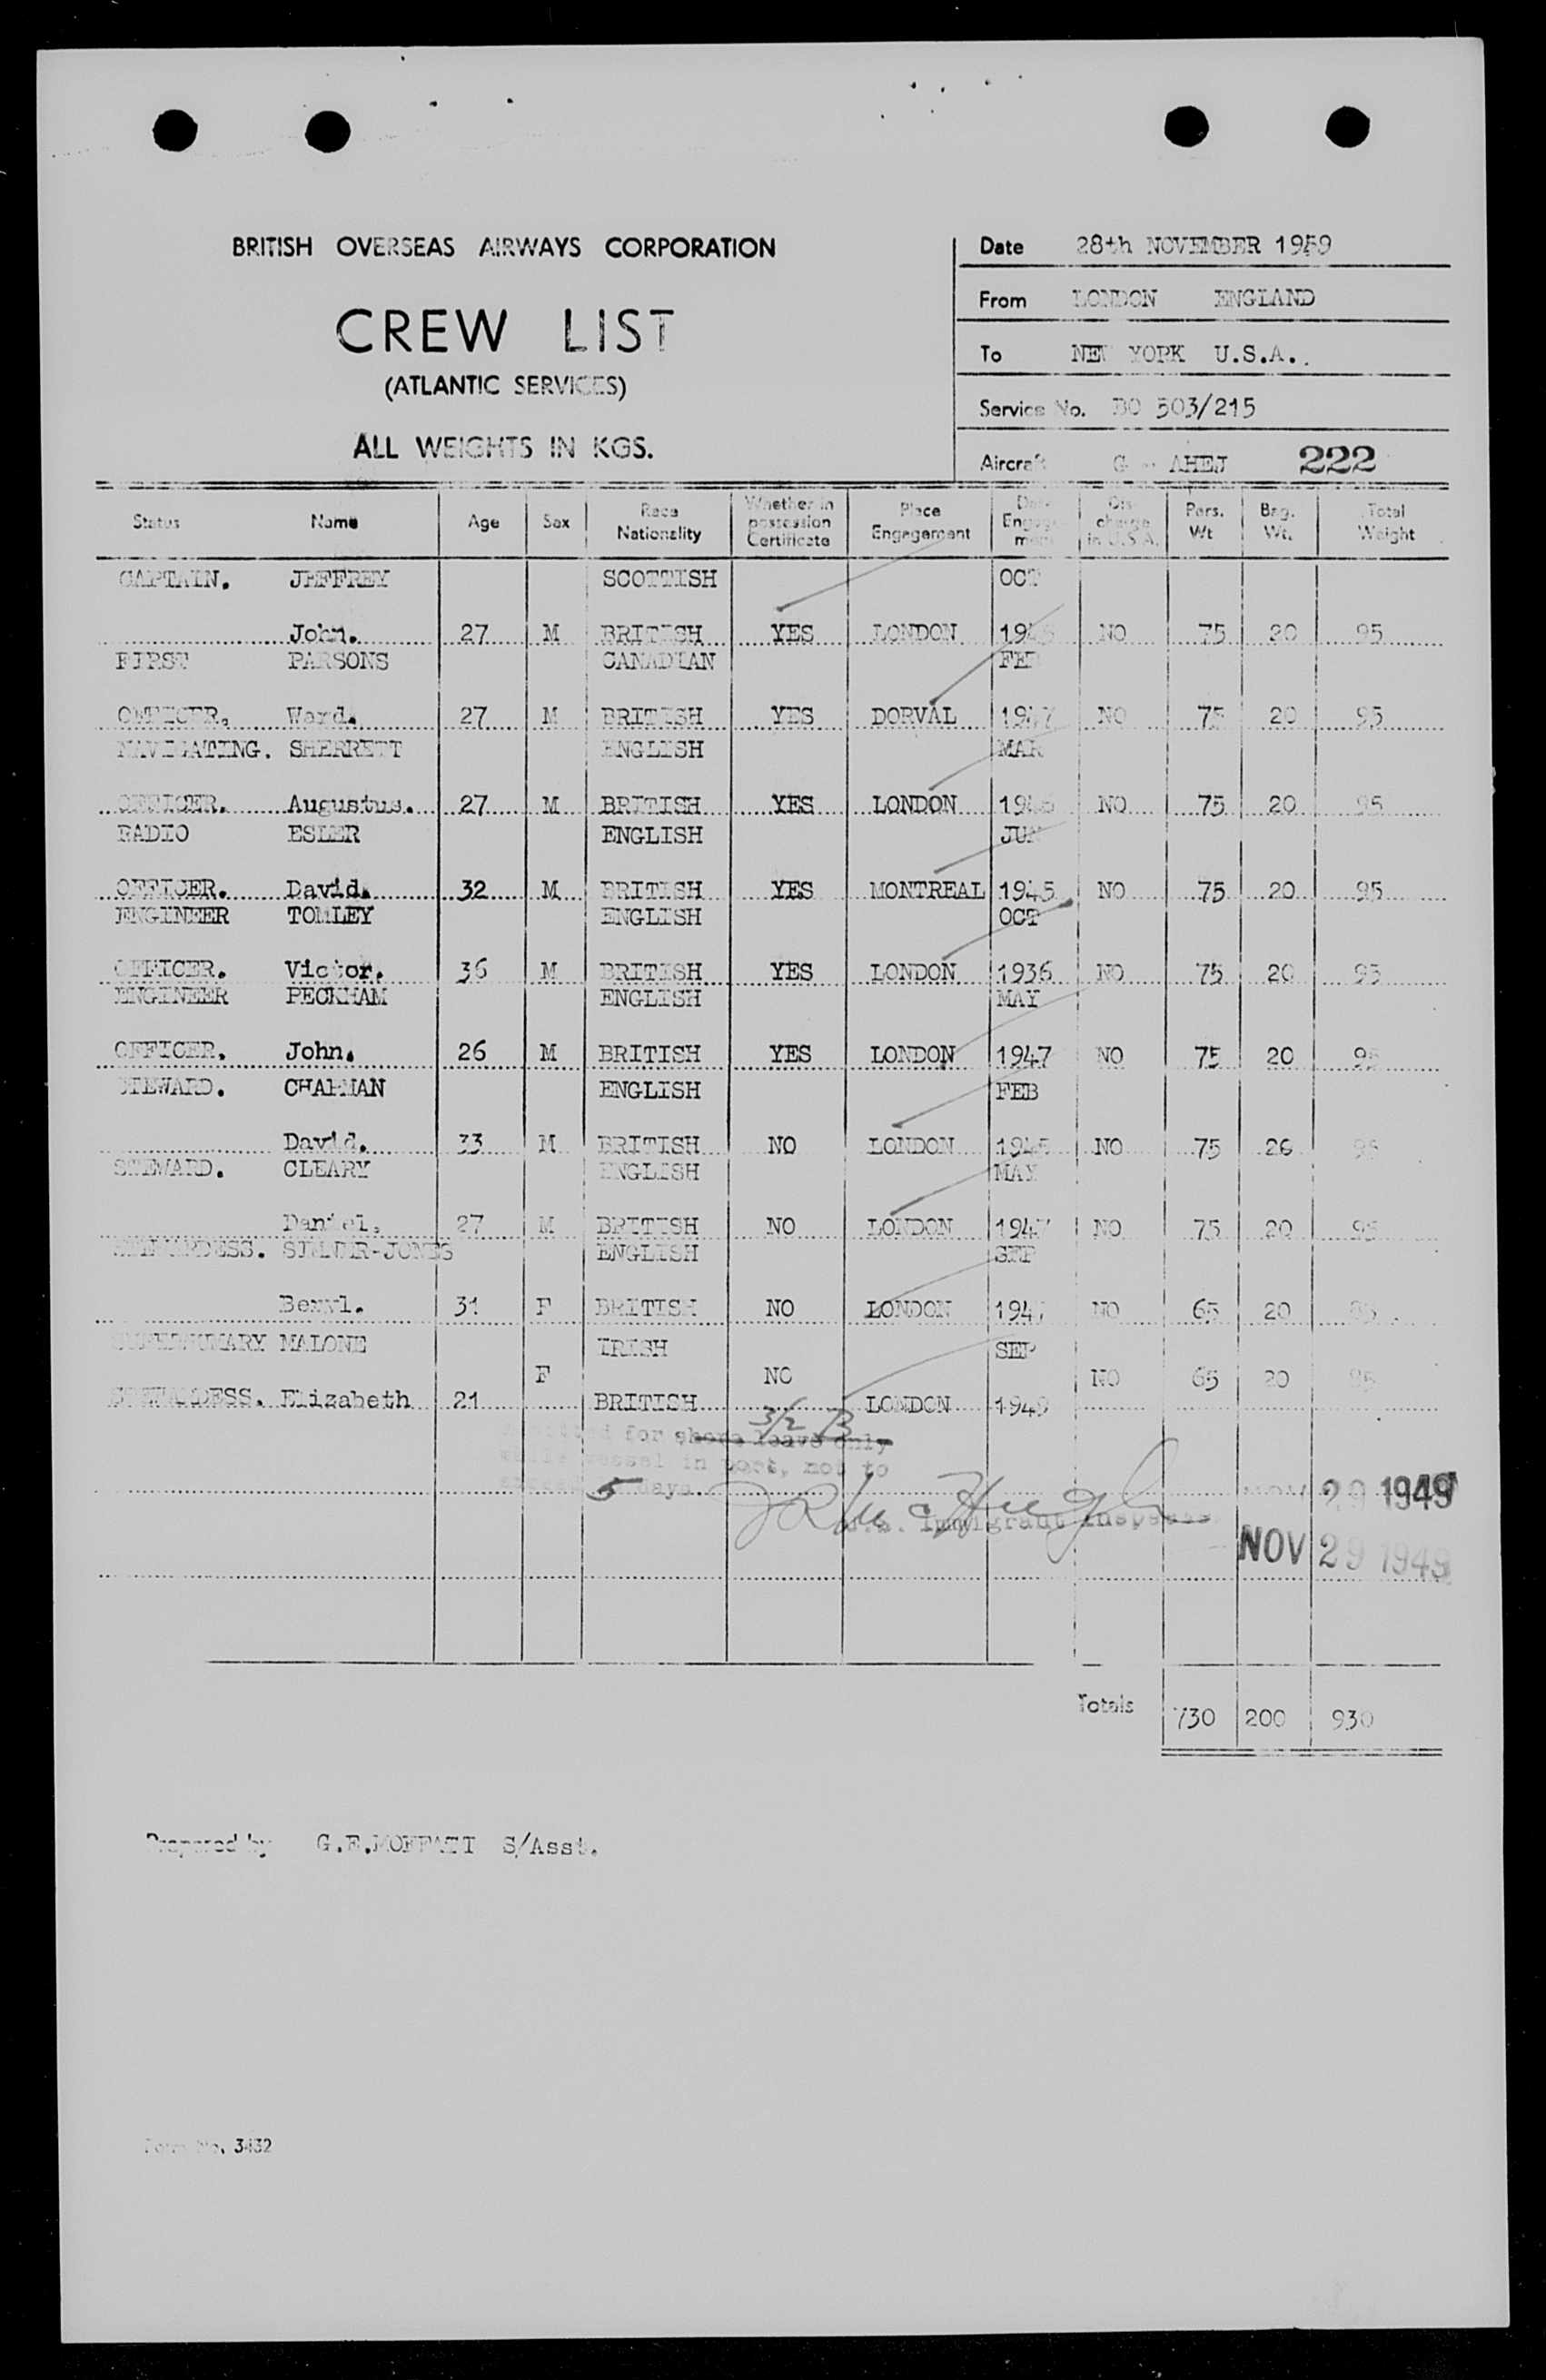 BRITISH OVERSEAS AIRWAYS CORPORATION
CREW LIST
(ATLANTIC SERVICES)
ALL WEIGHTS IN KGS.
Date 28th NOVEMBER 1959
From LONDON ENGLAND
To NEW YORK U.S.A.
Service No. BO 503/215
Aircraft G - AHEJ 222
Status Name Age Sex Race Nationality Whether in possession Certificate Place Engagement Date Engagement Discharge in U.S.A. Pers. Wt Bag. Wt. Total Weight
CAPTAIN. JEFFREY SCOTTISH OCT
John. 27 M BRITISH YES LONDON NO 75 20 95
FIRST PARSONS CANADIAN FEB
OFFICER. Ward. 27 M BRITISH YES DORVAL 1947 NO 75 20 95
NAVIGATING. SHERRETT ENGLISH MAR
OFFICER. Augustus. 27 M BRITISH YES LONDON NO 75 20 95
RADIO ESLER ENGLISH JUN
OFFICER. David. 32 M BRITISH YES MONTREAL 1945 NO 75 20 95
ENGINEER TOMLEY ENGLISH OCT
OFFICER. Victor. 36 M BRITISH YES LONDON 1936 NO 75 20 95
ENGINEER PECKHAM ENGLISH MAY
OFFICER. John. 26 M BRITISH YES LONDON 1947 NO 75 20 95
STEWARD. CHAPMAN ENGLISH FEB
David. 33 M BRITISH NO LONDON 1945 NO 75 20 95
STEWARD. CLEARY ENGLISH MAY
Daniel. 27 M BRITISH NO LONDON 1947 NO 75 20 95
STEWARDESS. ENGLISH SEP
Beryl. 31 F BRITISH NO LONDON 1947 NO 65 20 85
MALONE IRISH SEP
F NO NO 65 20 85
STEWARDESS. Elizabeth 21 BRITISH LONDON 1949
3/2 B
for shore leave only
while vessel in port, not to
exceed 5 days
U.S. Immigrant Inspector
NOV 29 1949
NOV 29 1949
Totals 730 200 930
Prepared by G.E.MOFFATT S/Asst.
Form No. 3432